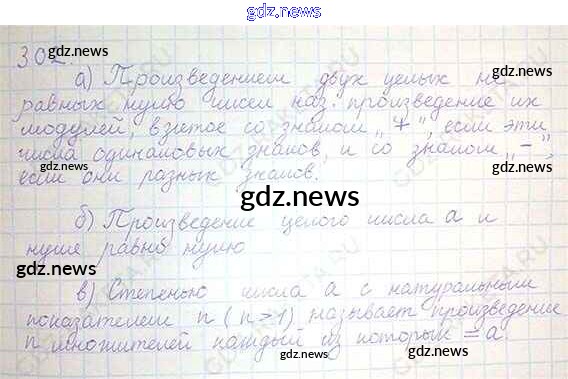 gdz.news
302.
gdz.news
gdz.news
а) Произведением двух целых не
равных нулю чисел наз. произведение их
модулей, взятое со знаком „+", если эти
числа одинаковых знаков, и со знаком „-",
если они разных знаков.
gdz.news
gdz.news
gdz.news
б) Произведение целого числа а и
нуля равно нулю
gdz.news
gdz.news
в) Степенью числа а с натуральным
показателем n (n>1) называет произведение
n множителей каждый из которых = а.
gdz.news
gdz.news